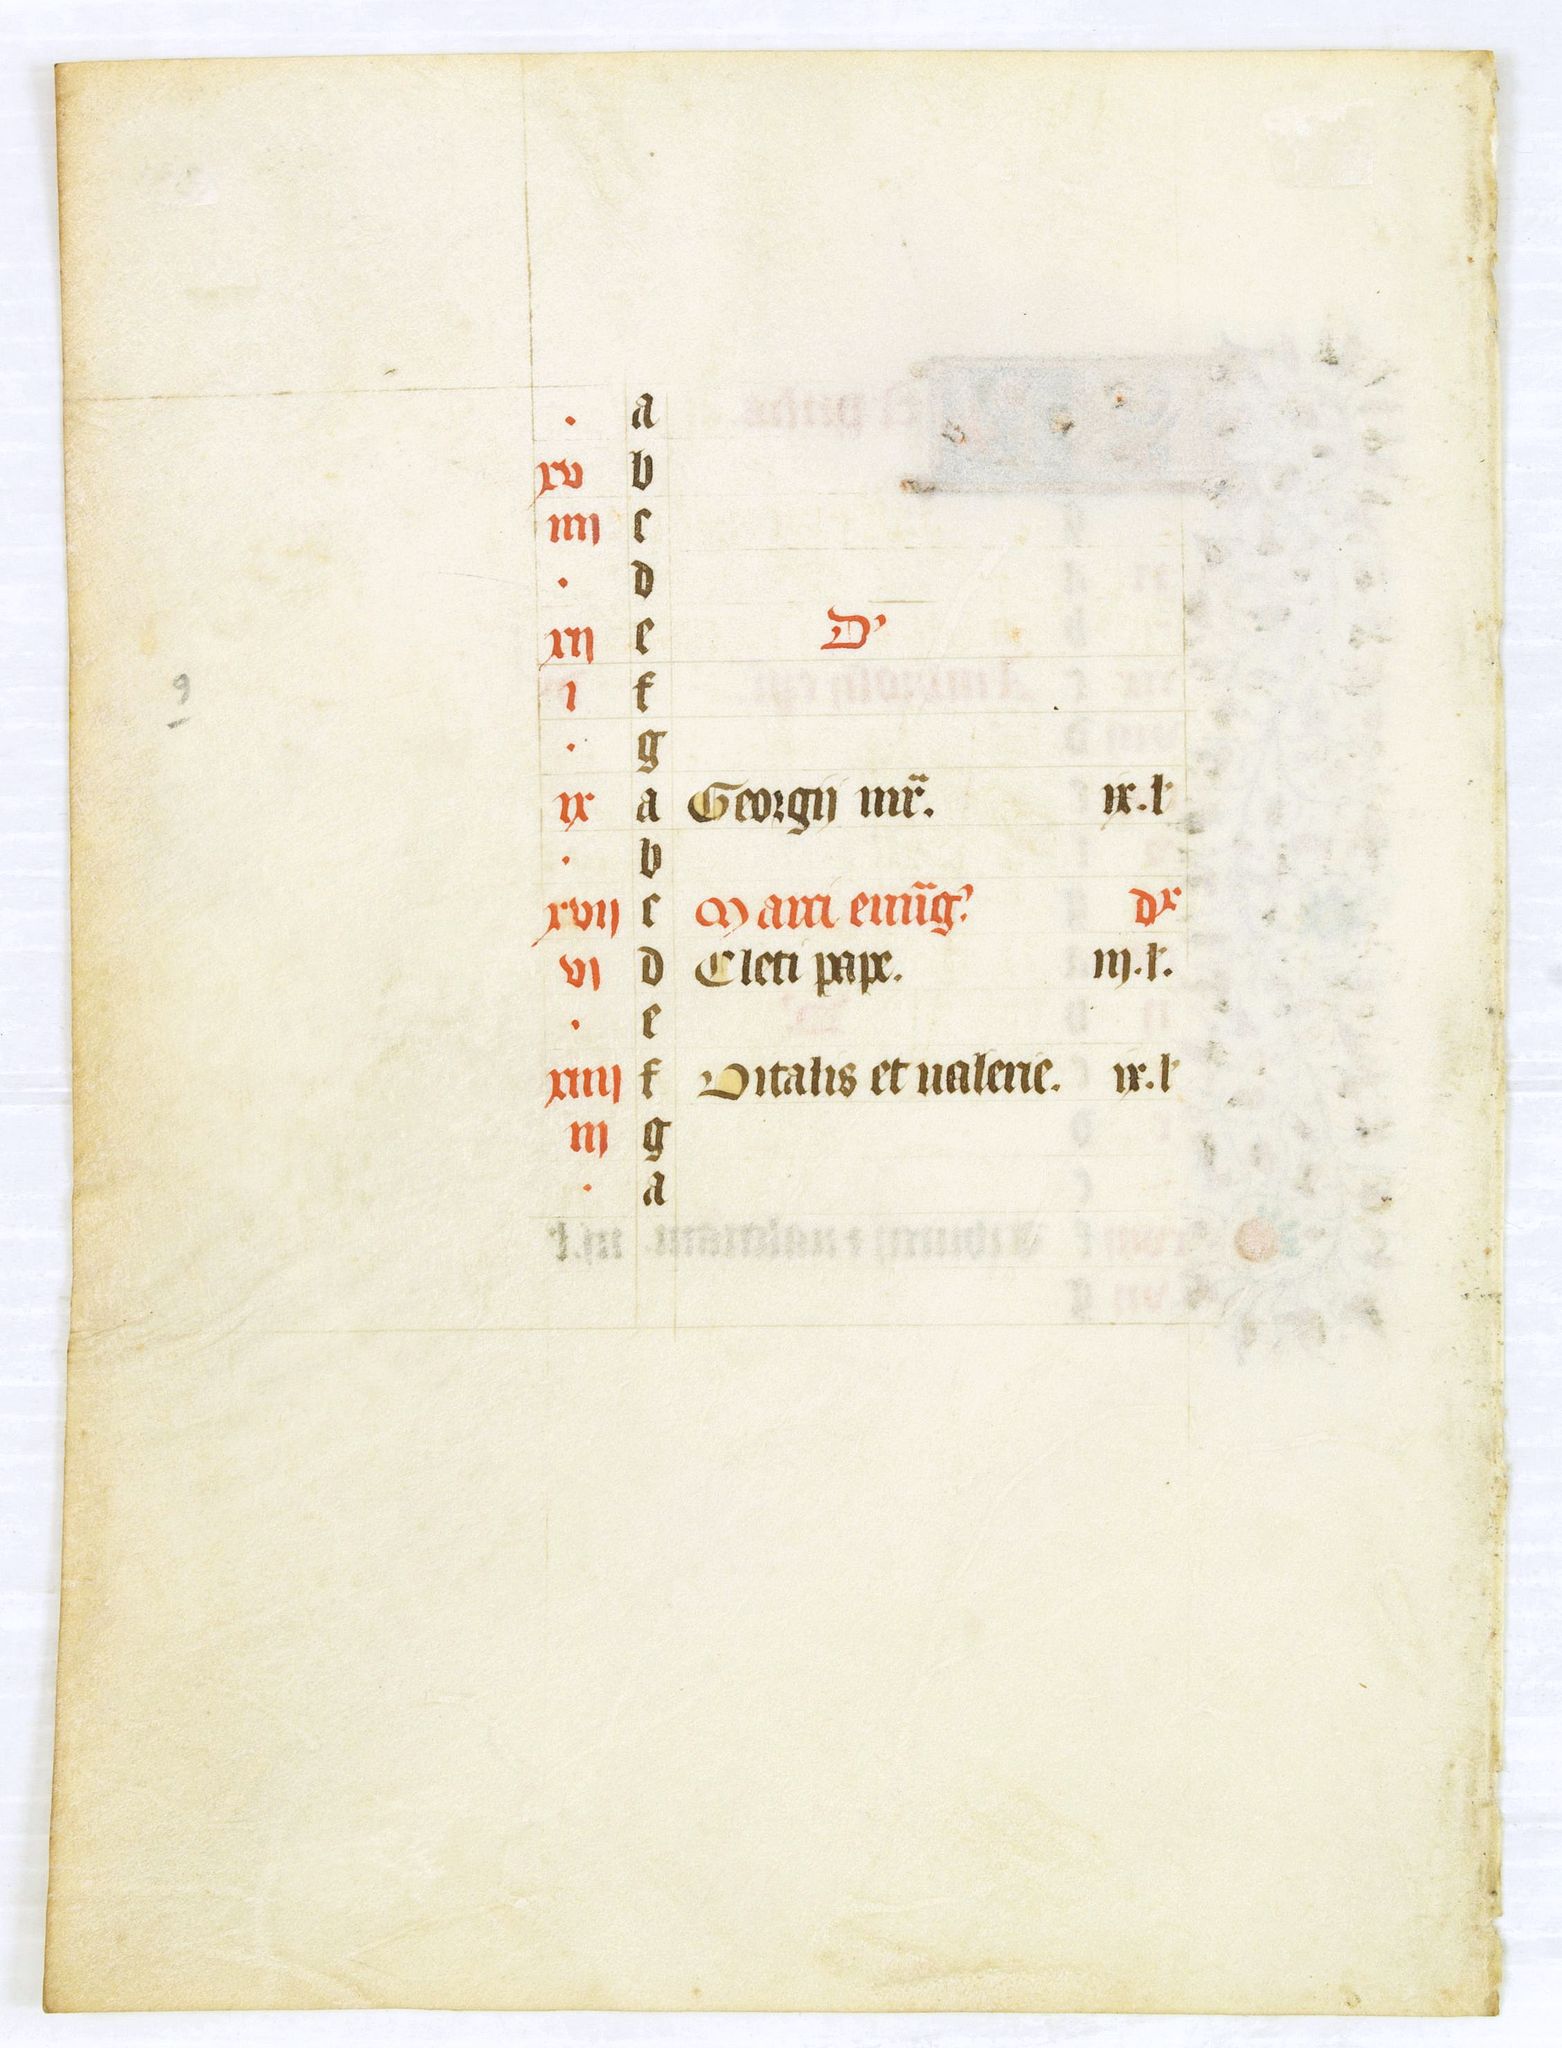 . a
xv b
iiij c
. d
xij e D'
i f
. g
ix a Georgij mr̄. ix.l
. b
xvij c Marci euūg? dx
vi d Cleti pape. iij.l.
. e
xiiij f Vitalis et ualerie. ix.l
iij g
. a
9